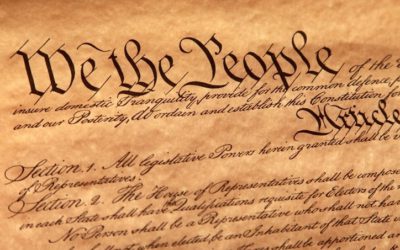 We the People of the
insure domestic Tranquility, provide for the common defence,
and our Posterity, do ordain and establish this Constitution for
Article
Section. 1. All legislative Powers herein granted shall be
of Representatives.
Section. 2. The House of Representatives shall be composed
in each State shall have the Qualifications requisite for Electors of the
No Person shall be a Representative who shall not have
when elected, be an Inhabitant of that State
shall be apportioned